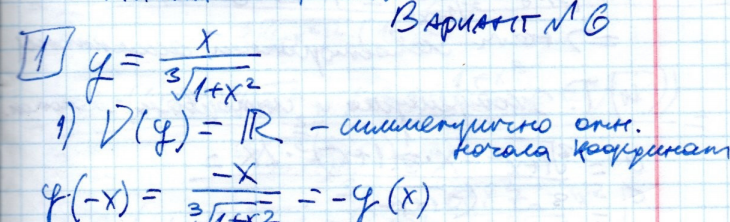 Вариант №6
1 y = x / ∛(1+x²)
1) D(y) = ℝ - симметрично отн.
начала координат
y(-x) = -x / ∛(1+x²) = -y(x)